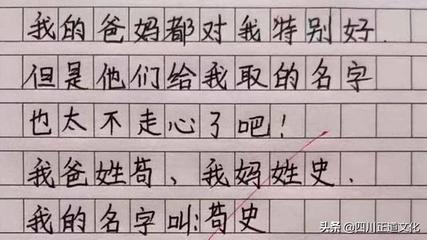 我的爸妈都对我特别好.
但是他们给我取的名字
也太不走心了吧!
我爸姓苟、我妈姓史.
我的名字叫:苟史
头条@四川正道文化